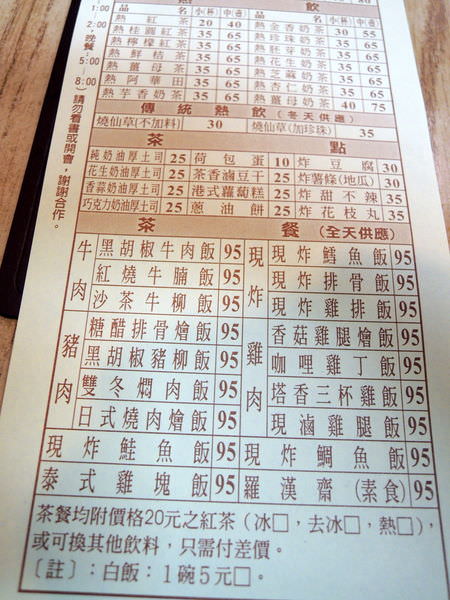 熱飲
品名 小(杯) 中(壺) 品名 小(杯) 中(壺)
熱紅茶 20 40 熱金香奶茶 30 55
熱桂圓紅茶 35 65 熱珍珠奶茶 35 65
熱檸檬紅茶 35 65 熱胚芽奶茶 35 65
熱鮮桔茶 35 65 熱花生奶茶 35 65
熱薑母茶 35 65 熱芝麻奶茶 35 65
熱阿華田 35 65 熱杏仁奶茶 35 65
熱芋香奶茶 35 65 熱薑母奶茶 40 75
傳統熱飲(冬天供應)
燒仙草(不加料) 30 燒仙草(加珍珠) 35
茶點
純奶油厚土司 25 荷包蛋 10 炸豆腐 30
花生奶油厚土司 25 茶香滷豆干 25 炸薯條(地瓜) 30
香蒜奶油厚土司 25 港式蘿蔔糕 25 炸甜不辣 35
巧克力奶油厚土司 25 蔥油餅 25 炸花枝丸 35
茶餐(全天供應)
牛肉 黑胡椒牛肉飯 95 現炸 現炸鱈魚飯 95
紅燒牛腩飯 95 現炸排骨飯 95
沙茶牛柳飯 95 現炸雞排飯 95
豬肉 糖醋排骨燴飯 95 雞肉 香菇雞腿燴飯 95
黑胡椒豬柳飯 95 咖哩雞丁飯 95
雙冬燜肉飯 95 塔香三杯雞飯 95
日式燒肉燴飯 95 現滷雞腿飯 95
現炸鮭魚飯 95 現炸鯛魚飯 95
泰式雞塊飯 95 羅漢齋(素食) 95
茶餐均附價格20元之紅茶(冰□,去冰□,熱□),
或可換其他飲料,只需付差價。
〔註〕:白飯:1碗5元□。
1:00
2:00,晚餐:5:00
8:00)請勿看書或開會,謝謝合作。